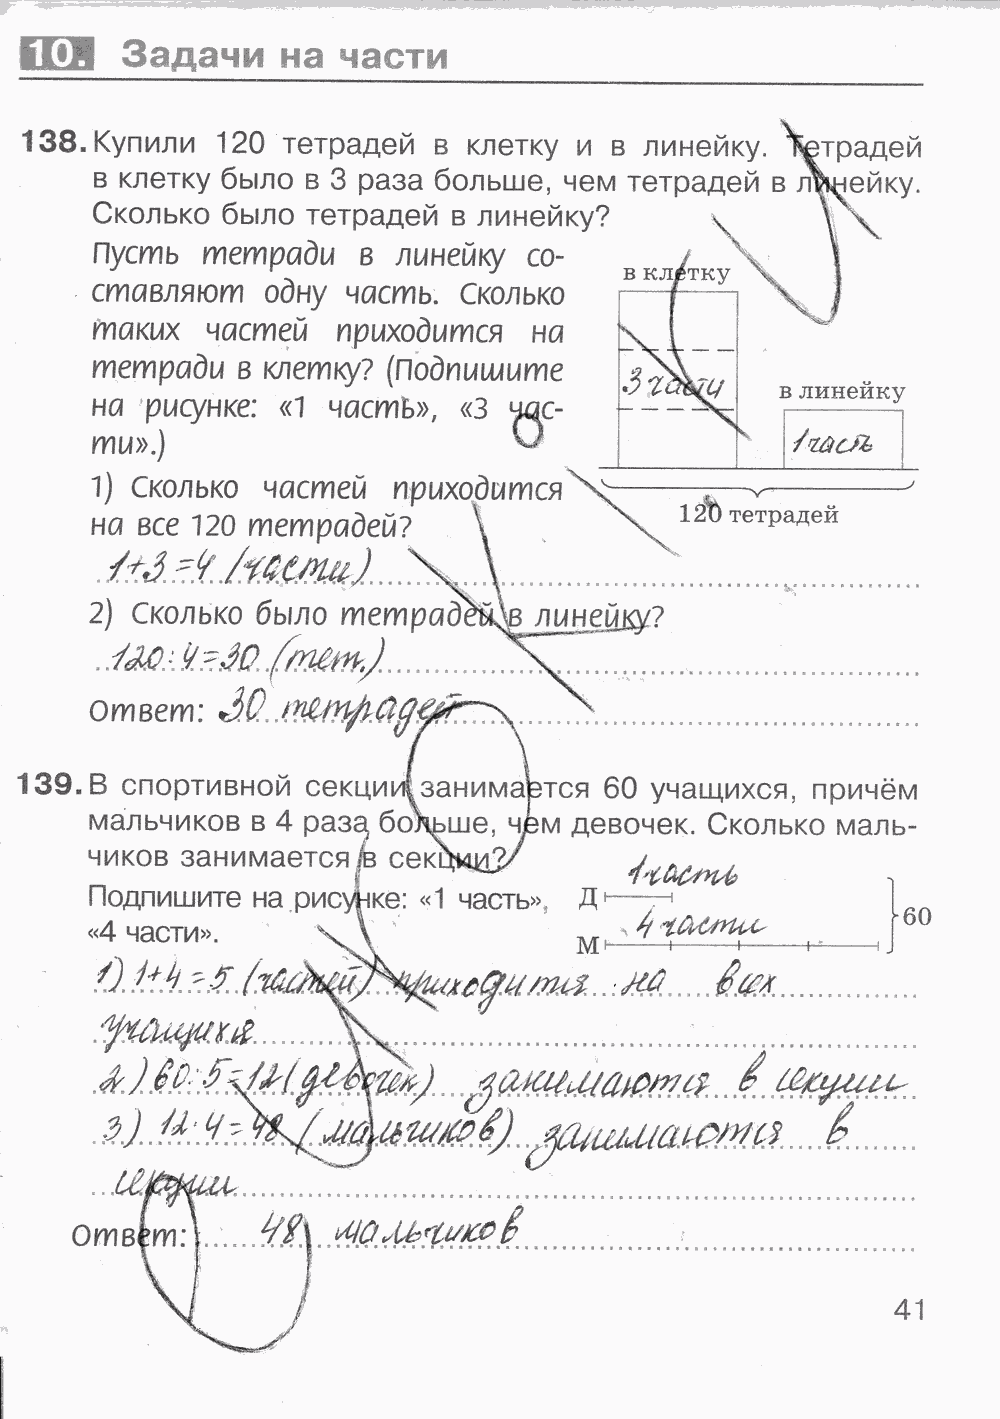 10. Задачи на части
138. Купили 120 тетрадей в клетку и в линейку. Тетрадей
в клетку было в 3 раза больше, чем тетрадей в линейку.
Сколько было тетрадей в линейку?
Пусть тетради в линейку со-
ставляют одну часть. Сколько
таких частей приходится на
тетради в клетку? (Подпишите
на рисунке: «1 часть», «3 час-
ти».)
в клетку
3 части
в линейку
1 часть
120 тетрадей
1) Сколько частей приходится
на все 120 тетрадей?
1+3=4 (части)
2) Сколько было тетрадей в линейку?
120:4=30 (тет.)
Ответ: 30 тетрадей
139. В спортивной секции занимается 60 учащихся, причём
мальчиков в 4 раза больше, чем девочек. Сколько маль-
чиков занимается в секции?
Подпишите на рисунке: «1 часть»,
«4 части».
1 часть
Д
4 части
М
60
1) 1+4=5 (частей) приходится на всех
учащихся
2) 60:5=12 (девочек) занимаются в секции
3) 12·4=48 (мальчиков) занимаются в
секции
Ответ: 48 мальчиков
41